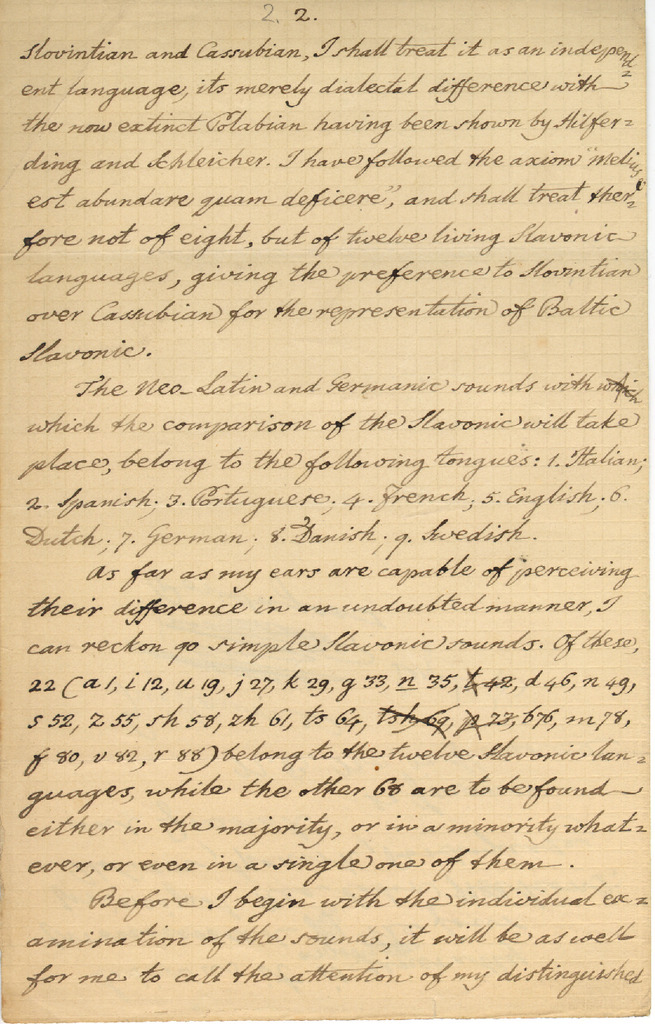 2. 2.
Slovintian and Cassubian, I shall treat it as an independ=
ent language, its merely dialectal difference with
the now extinct Polabian having been shown by Hilfer=
ding and Schleicher. I have followed the axiom "Melius
est abundare quam deficere", and shall treat there=
fore not of eight, but of twelve living Slavonic
languages, giving the preference to Slovintian
over Cassubian for the representation of Baltic
Slavonic.
The Neo-Latin and Germanic sounds with which
which the comparison of the Slavonic will take
place, belong to the following tongues: 1. Italian;
2. Spanish; 3. Portuguese; 4. French; 5. English; 6.
Dutch; 7. German; 8. Danish; 9. Swedish.
As far as my ears are capable of perceiving
their difference in an undoubted manner, I
can reckon 90 simple Slavonic sounds. Of these,
22 (a 1, i 12, u 19, j 27, k 29, g 33, n 35, t 42, d 46, n 49,
s 52, z 55, sh 58, zh 61, ts 64, tsh 69, p 73, b 76, m 78,
f 80, v 82, r 88) belong to the twelve Slavonic lan=
guages, while the other 68 are to be found
either in the majority, or in a minority what=
ever, or even in a single one of them.
Before I begin with the individual ex=
amination of the sounds, it will be as well
for me to call the attention of my distinguished